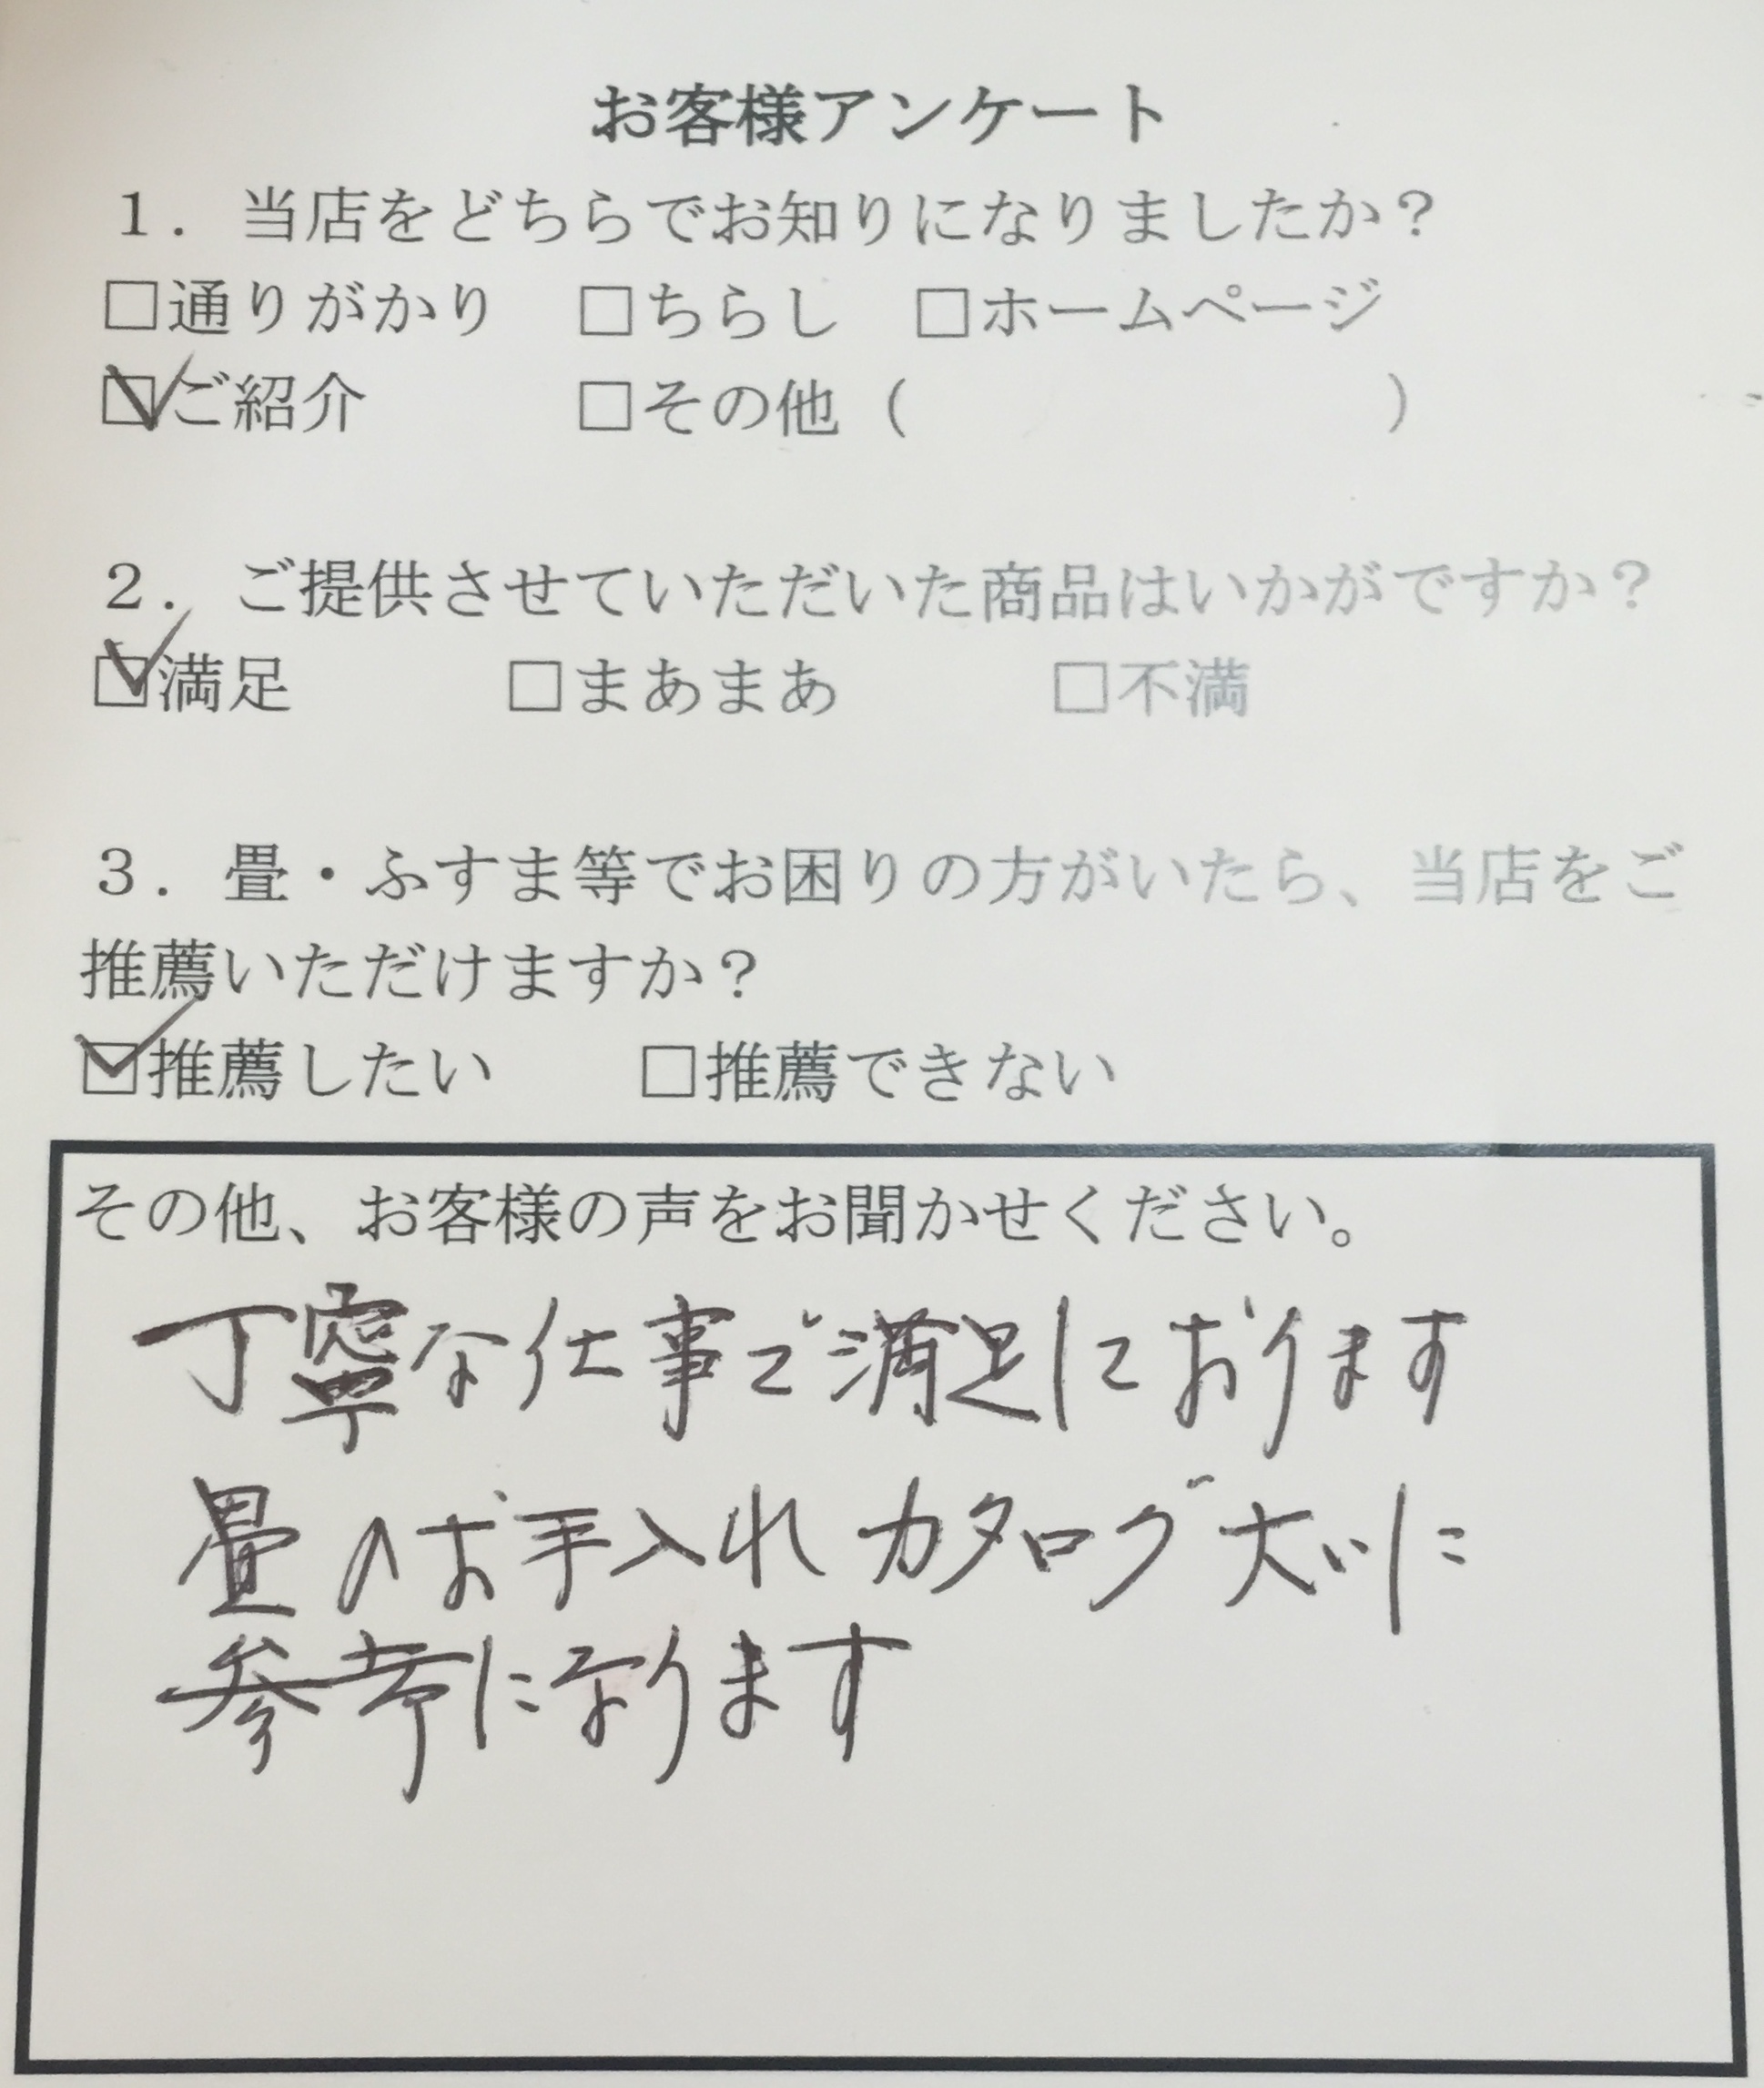 お客様アンケート
1. 当店をどちらでお知りになりましたか？
□通りがかり　□ちらし　□ホームページ
☑ご紹介　□その他（　　　　　　　）
2. ご提供させていただいた商品はいかがですか？
☑満足　□まあまあ　□不満
3. 畳・ふすま等でお困りの方がいたら、当店をご
推薦いただけますか？
☑推薦したい　□推薦できない
その他、お客様の声をお聞かせください。
丁寧な仕事で満足しております
畳のお手入れカタログ大いに
参考になります